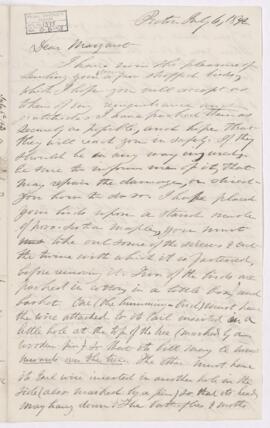 July 6, 1892
Dear Margaret
I have now the pleasure of
sending you a few stuffed birds,
which I hope you will accept as
token of my remembrance and
gratitude. I have packed them as
securely as possible, and hope that
they will reach you in safety. If they
should be in any way injured,
be sure to inform me of it, that I
may repair the damage, or
you how to do so. I have placed
your birds upon a stand made
of Maple, you must
take out some of the screws & cut
the twine with which it is fastened,
before removing it. Two of the birds are
packed in cotton, in a little box, and
basket. One (the humming bird) must have
the wire attached to its tail inserted in a
little hole at the top of the tree (marked by a
wooden pin) so that its bill may be
The other must have
its tail wire inserted in another hole in the
side (also marked by a pin) so that its head
may hang down. The butterflies & moths